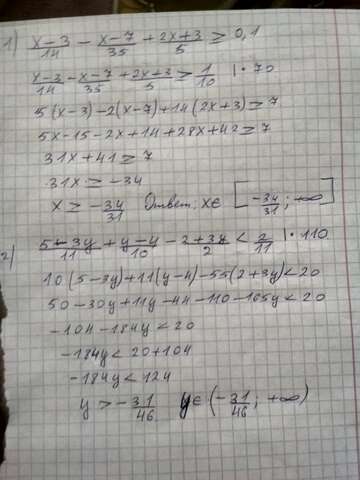 1) x-3/14 - x-7/35 + 2x+3/5 ≥ 0,1
x-3/14 - x-7/35 + 2x+3/5 ≥ 1/10 | · 70
5(x-3)-2(x-7)+14(2x+3) ≥ 7
5x-15-2x+14+28x+42 ≥ 7
31x+41 ≥ 7
31x ≥ -34
x ≥ -34/31 Ответ: x∈ [-34/31; +∞)
2) 5-3y/11 + y-4/10 - 2+3y/2 < 2/11 | · 110
10(5-3y)+11(y-4)-55(2+3y)<20
50-30y+11y-44-110-165y<20
-104-184y<20
-184y<20+104
-184y<124
y>-31/46 y∈(-31/46; +∞)